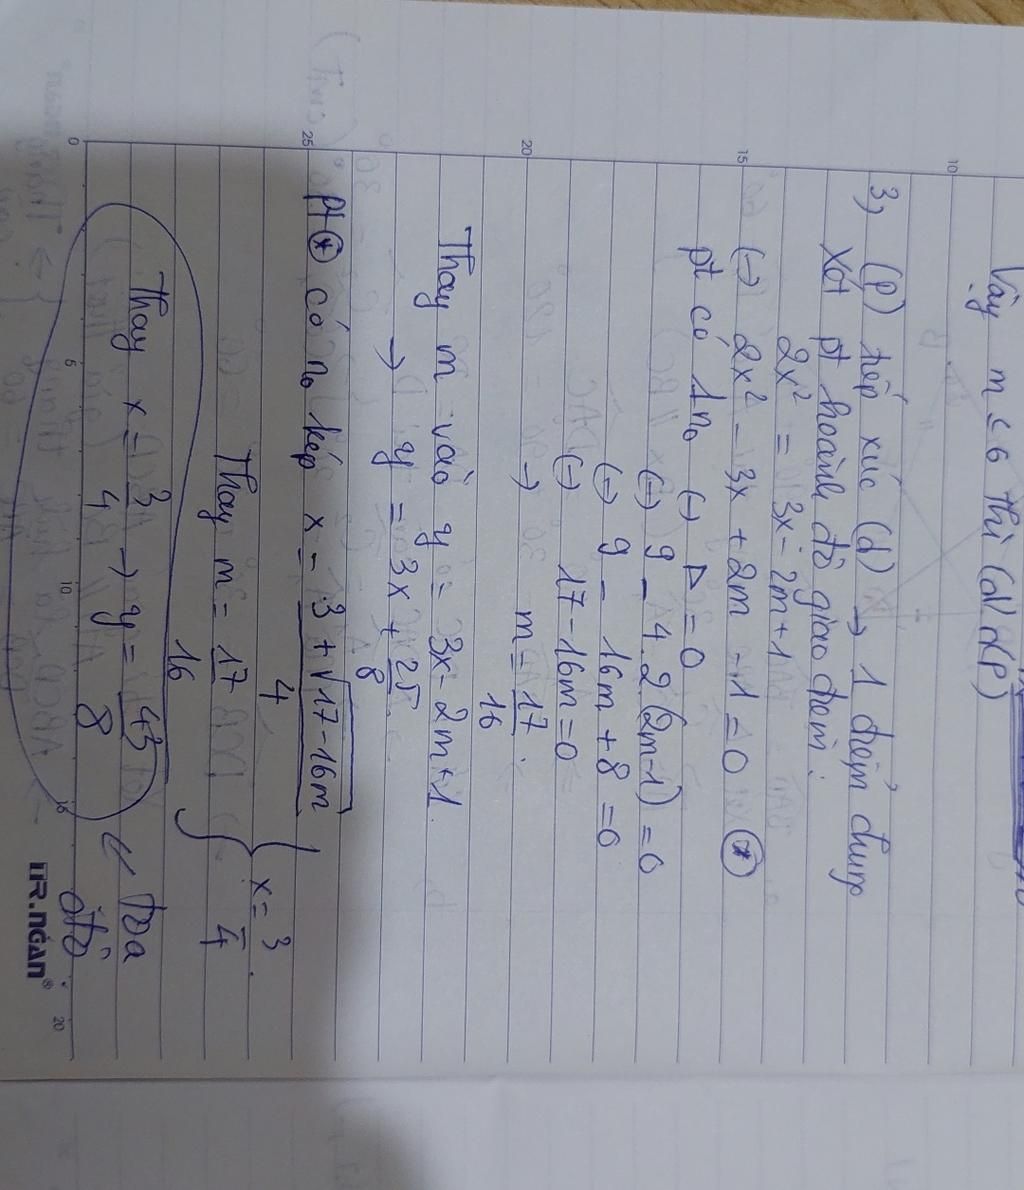 Vậy m ≤ 6 thì (d) (P)
3, (P) tiếp xúc (d) → 1 điểm chung
Xét pt hoành độ giao điểm:
2x² = 3x - 2m + 1
(-) 2x² - 3x + 2m - 1 = 0 (*)
pt có 1 n₀ (-) Δ = 0
(-) 9 - 4.2(2m-1) = 0
(-) 9 - 16m + 8 = 0
(-) 17 - 16m = 0
→ m = 17/16.
Thay m vào y = 3x - 2m + 1.
→ y = 3x + 25/8.
pt (*) có n₀ kép x = (3 + √17-16m)/4
Thay m = 17/16 } x = 3/4.
Thay x = 3/4 → y = 43/8 ✓ Tọa độ.
TR.NGÂN®
0 5 10 15 20
10
15
20
25